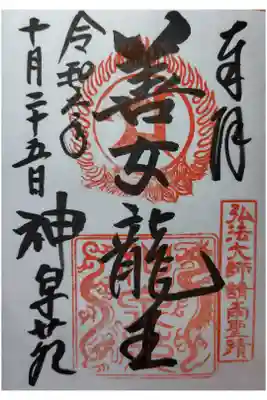 奉拝
弘法大師請雨聖蹟
善女龍王
令和六年
十月二十五日
神泉苑